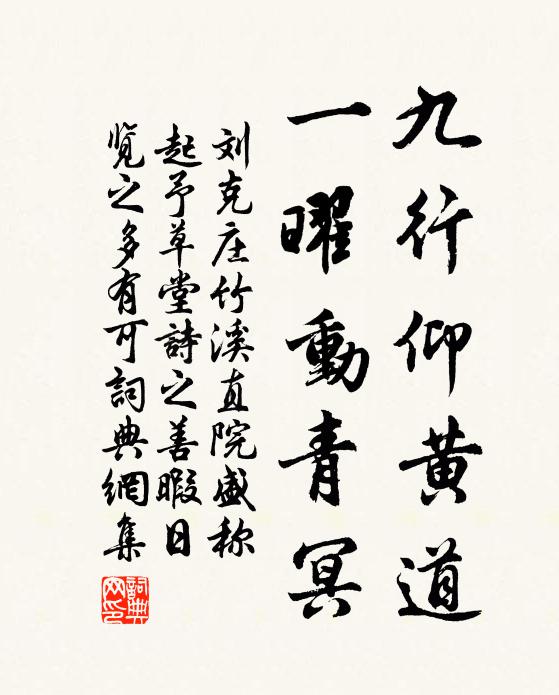 九行仰黄道
一曜動青冥
刘克庄竹溪直院盛称
起予草堂詩之善暇日
覽之多有可詞典網集
詞典网印